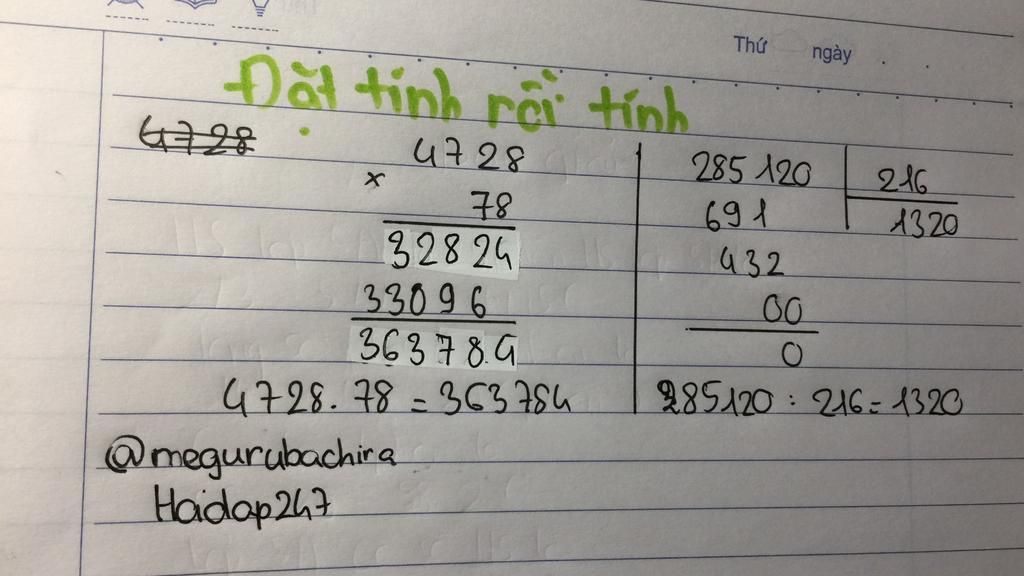 Thứ ngày . .
Đặt tính rồi tính
4728
4728
x
78
32824
33096
363784
4728.78=363784
285120 216
691 1320
432
00
0
285120:216=1320
@megurubachira
Hoidap247